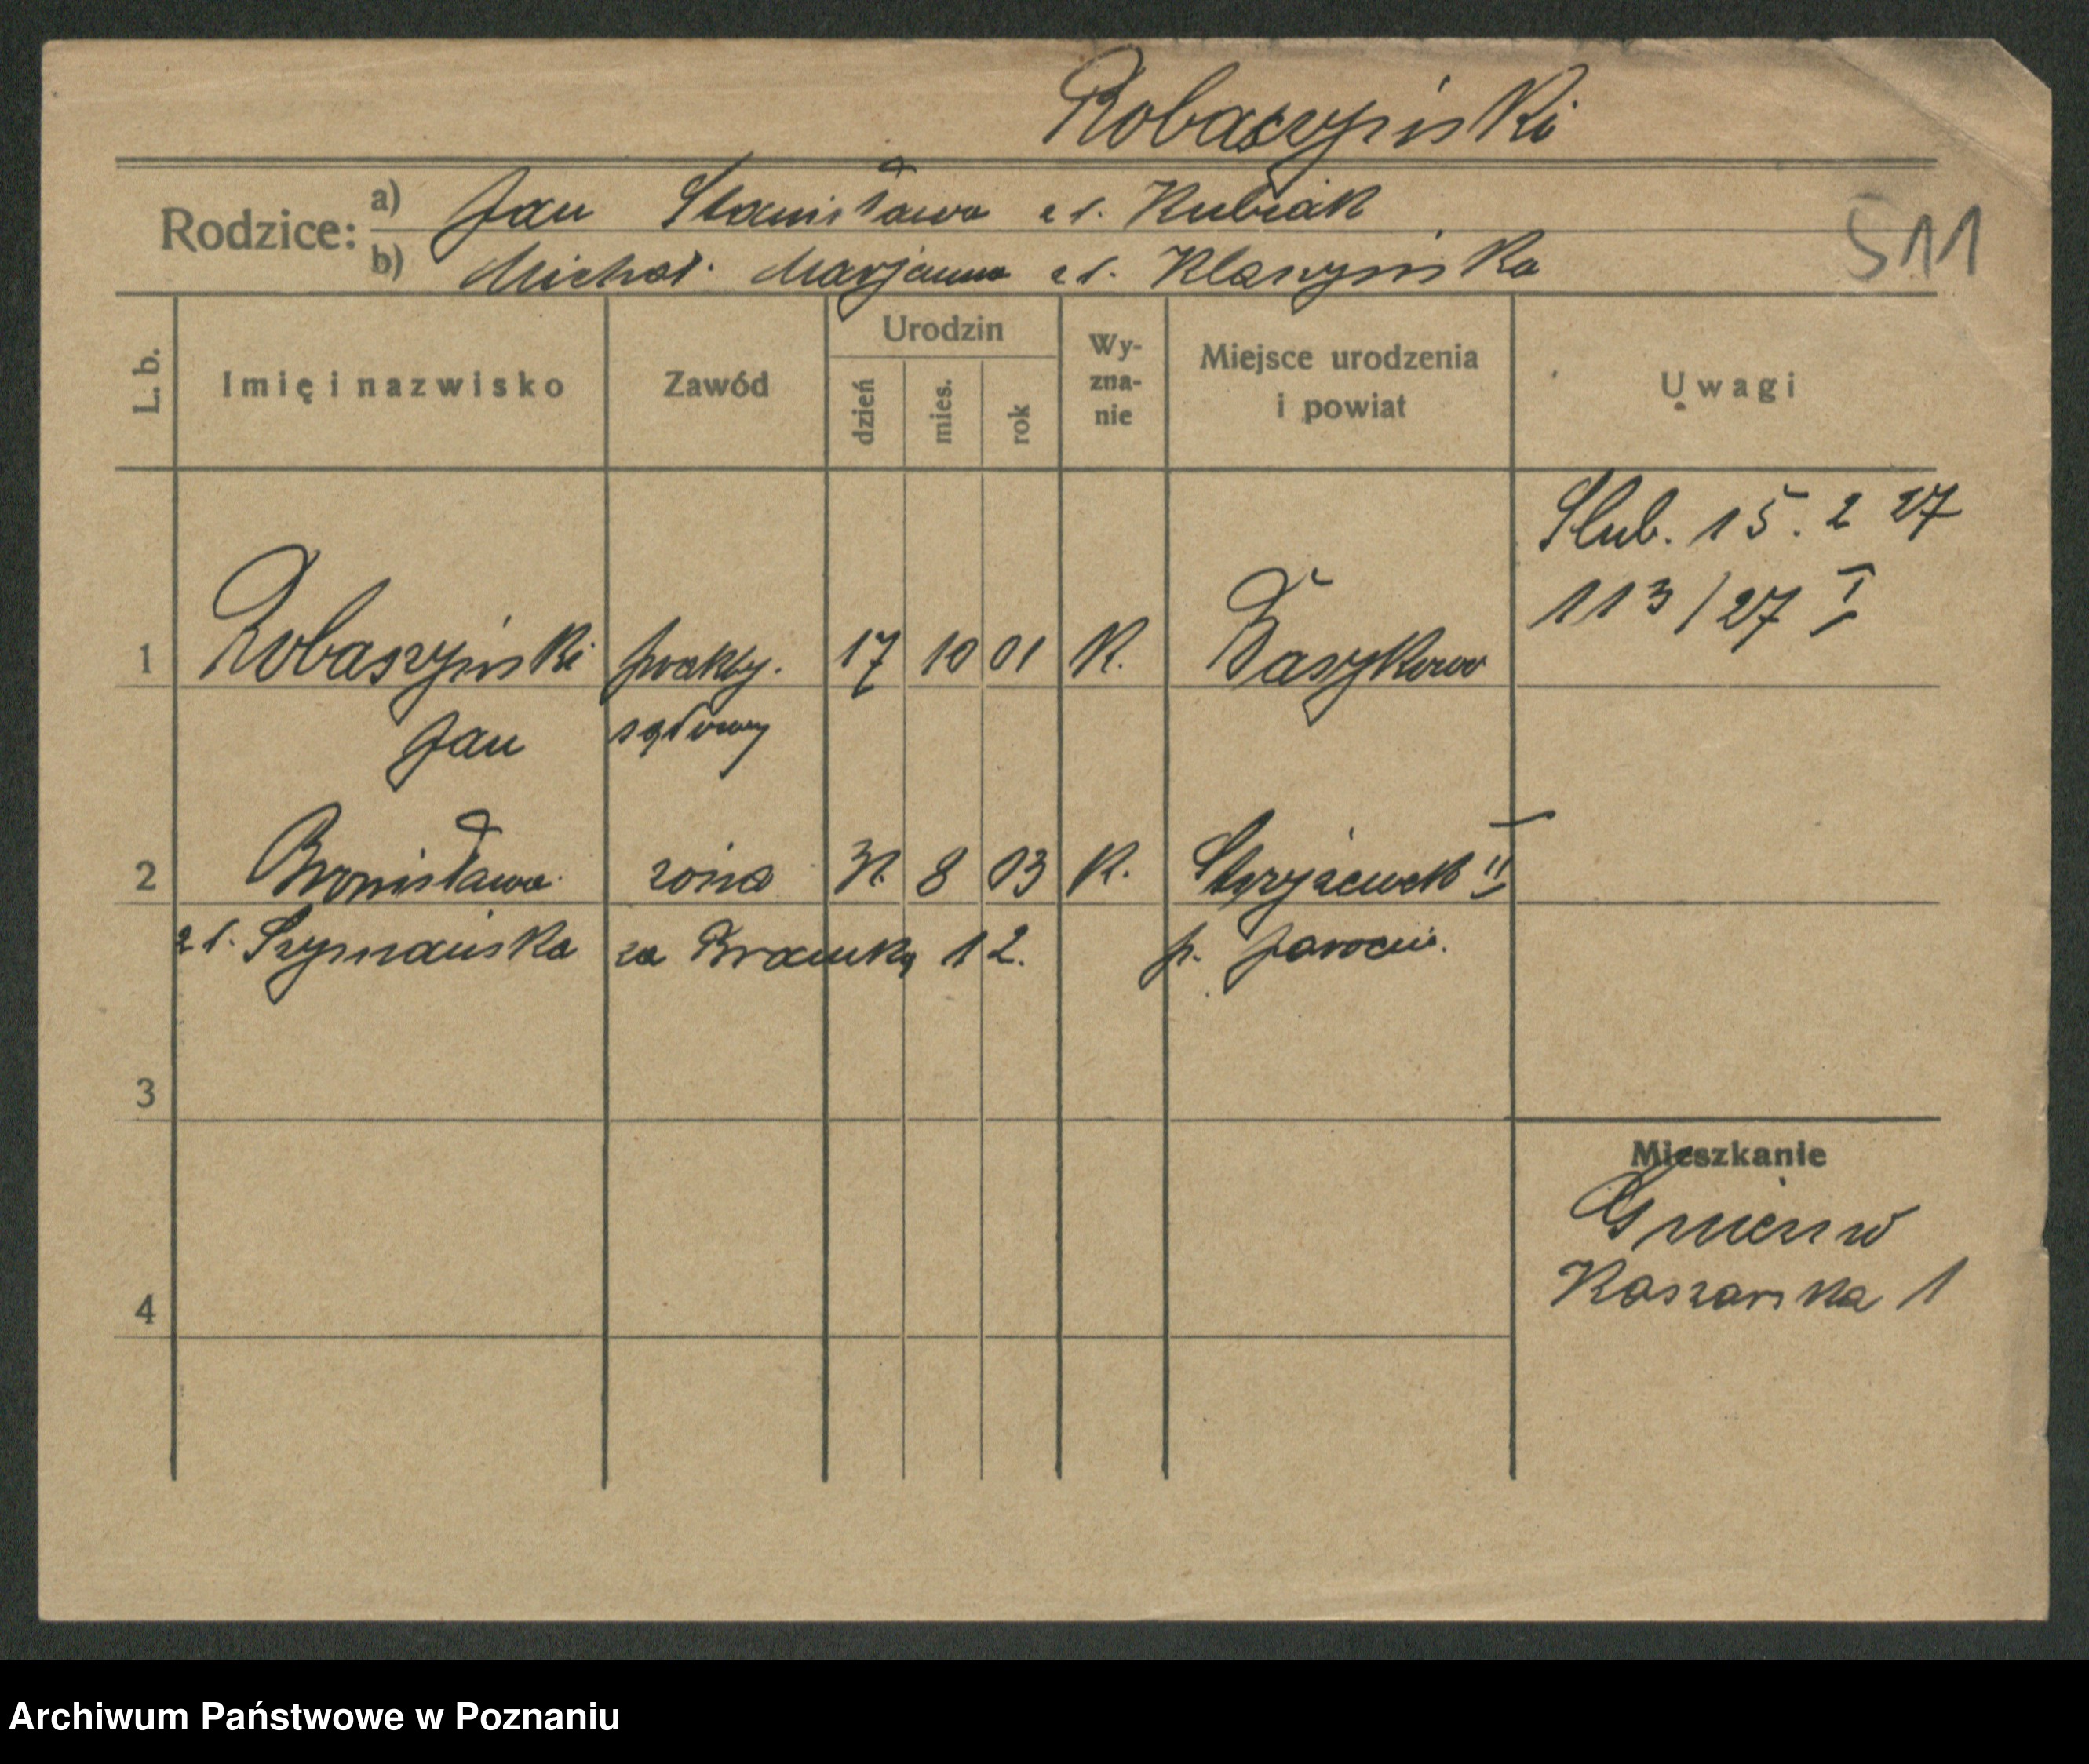 Robaszyński
Rodzice: a) Jan Stanisława z d. Kubiak
b) Michał Marjanna z d. Klaszyńska
511
L. b. Imię i nazwisko Zawód Urodzin dzień mies. rok Wy-zna-nie Miejsce urodzenia i powiat Uwagi
Slub. 15. 2 27
113/27 I
1 Robaszyński prakty. 17 10 01 K.
Jan sądowy
2 Bronisława żona 31. 8 03 K. II
z d. Szymańska za Bramką 12. p. Jarocin.
3
Mieszkanie
4
Koszarska 1
Archiwum Państwowe w Poznaniu